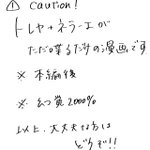 ① caution!
トレヤ+ネラーエが
ただ喋るだけの漫画です
※ 本編後
※ 幻覚2000%
以上、大丈夫な方は
どうぞ!!